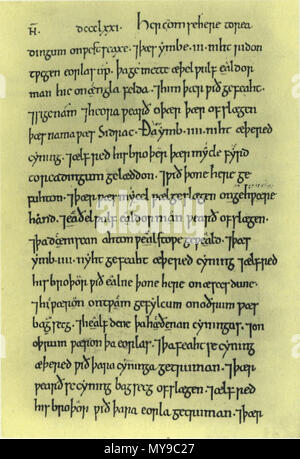 N̄. DCCCLXXI. Her com se here to rea
dingum on ƿestseaxe. ⁊ þæs ymbe .iii. niht ridon
tƿegen eorlas up. þa gemette æþelƿulf ealdor
man hie on engla felda. ⁊ him þær ƿið gefeaht.
⁊ sige nam. ⁊ heora ƿearð oþær þær ofslægen
þæs nama ƿæs Sidrac. Ða ymb .iiii. niht æþered
cyning. ⁊ ælfred his broþer þær mycle fyrd
to readingum gelæddon. ⁊ ƿið þone here ge
fuhton. ⁊ þær ƿæs mycel ƿælgeslægen on gehƿæþere
hand. ⁊ eaðelƿulf ealdorman ƿearð ofslægen.
⁊ þa deniscan ahton ƿælstoƿe geƿeald. ⁊ þæs
ymb .iiii. nyht gefeaht æþered cyning ⁊ ælfred
his broþor ƿið ealne þone here on æscesdune.
⁊ hi ƿæron on tƿam gefylcum on oðrum ƿæs
bagsecg. ⁊ healfdene þa hæðenan cyningas. ⁊ on
oþrum ƿæron þa eorlas. ⁊ þa feaht se cyning
æþered ƿið þara cyninga getruman. ⁊ þær
ƿearð se cyning bagsecg ofslægen. ⁊ ælfred
his broþor ƿið þara eorla getruman. ⁊ þær